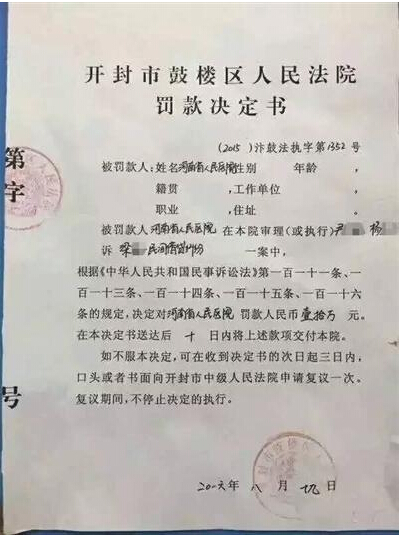 开封市鼓楼区人民法院
罚款决定书
(2015)汴鼓法执字第1352号
被罚款人:姓名河南省人民医院性别 年龄,
籍贯 ,工作单位
职业 ,住址
被罚款人河南省人民医院在本院审理(或执行)尹 杨
诉梁 民间借贷纠纷 一案中,
根据《中华人民共和国民事诉讼法》第一百一十一条、一
百一十三条、一百一十四条、一百一十五条、一百一十六
条的规定,决定对河南省人民医院罚款人民币壹拾万 元。
在本决定书送达后 十 日内将上述款项交付本院。
如不服本决定,可在收到决定书的次日起三日内,
口头或者书面向开封市中级人民法院申请复议一次。
复议期间,不停止决定的执行。
二〇一六年 八 月 十九 日
第
字
号